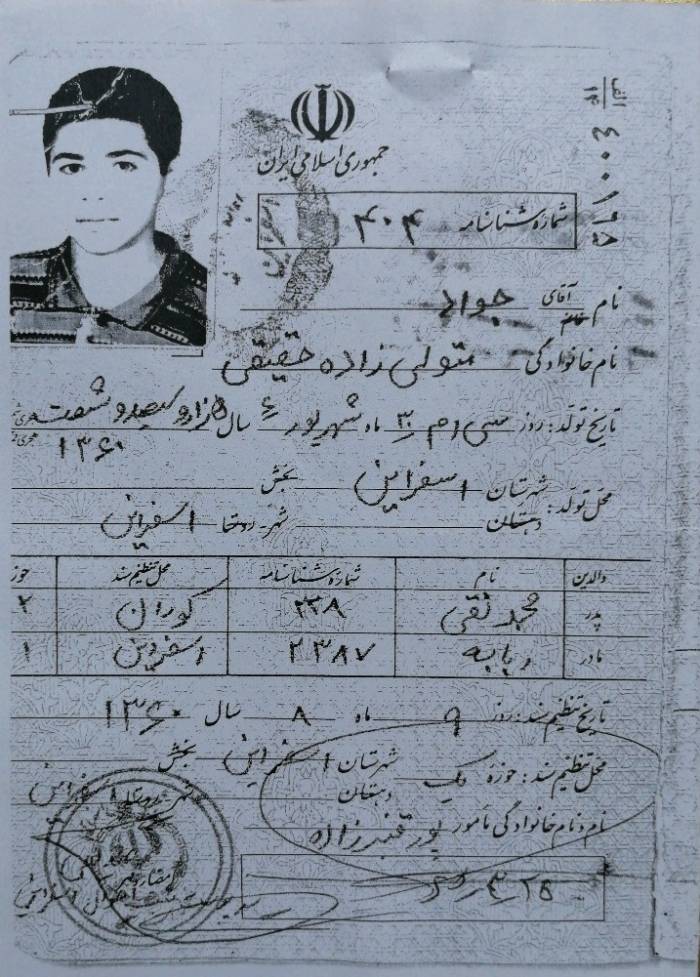 جمهوری اسلامی ایران
الف
۱۴
شماره شناسنامه ۴۰۴
نام آقای جواد
خانم
نام خانوادگی متولی زاده حقیقی
تاریخ تولد: روز سی ام ۳۰ ماه شهریور ۶ سال هزار و سیصد و شصت
۱۳۶۰
محل تولد: شهرستان اسفراین بخش
دهستان شهر - روستا اسفراین
والدین نام شماره شناسنامه محل تنظیم سند حوز
پدر محمد تقی ۲۳۸ کوران ۲
مادر ربابه ۲۳۸۷ اسفراین ۱
تاریخ تنظیم سند: روز ۹ ماه ۸ سال ۱۳۶۰
محل تنظیم سند: حوزه یک شهرستان اسفراین بخش
دهستان
نام و نام خانوادگی مامور پور قنبرزاده